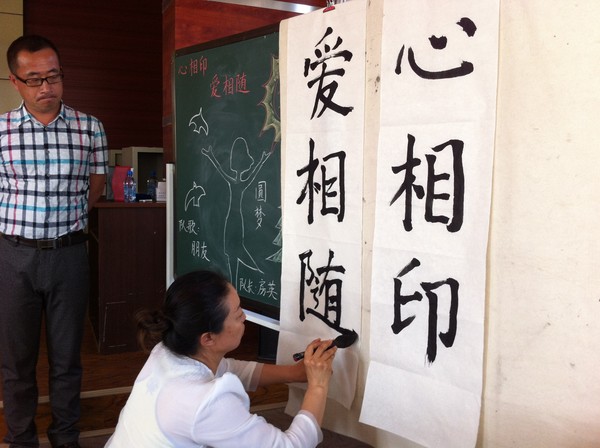 心相印
爱相随
心相印
爱相随
圆梦
队歌:
朋友
队长:房英